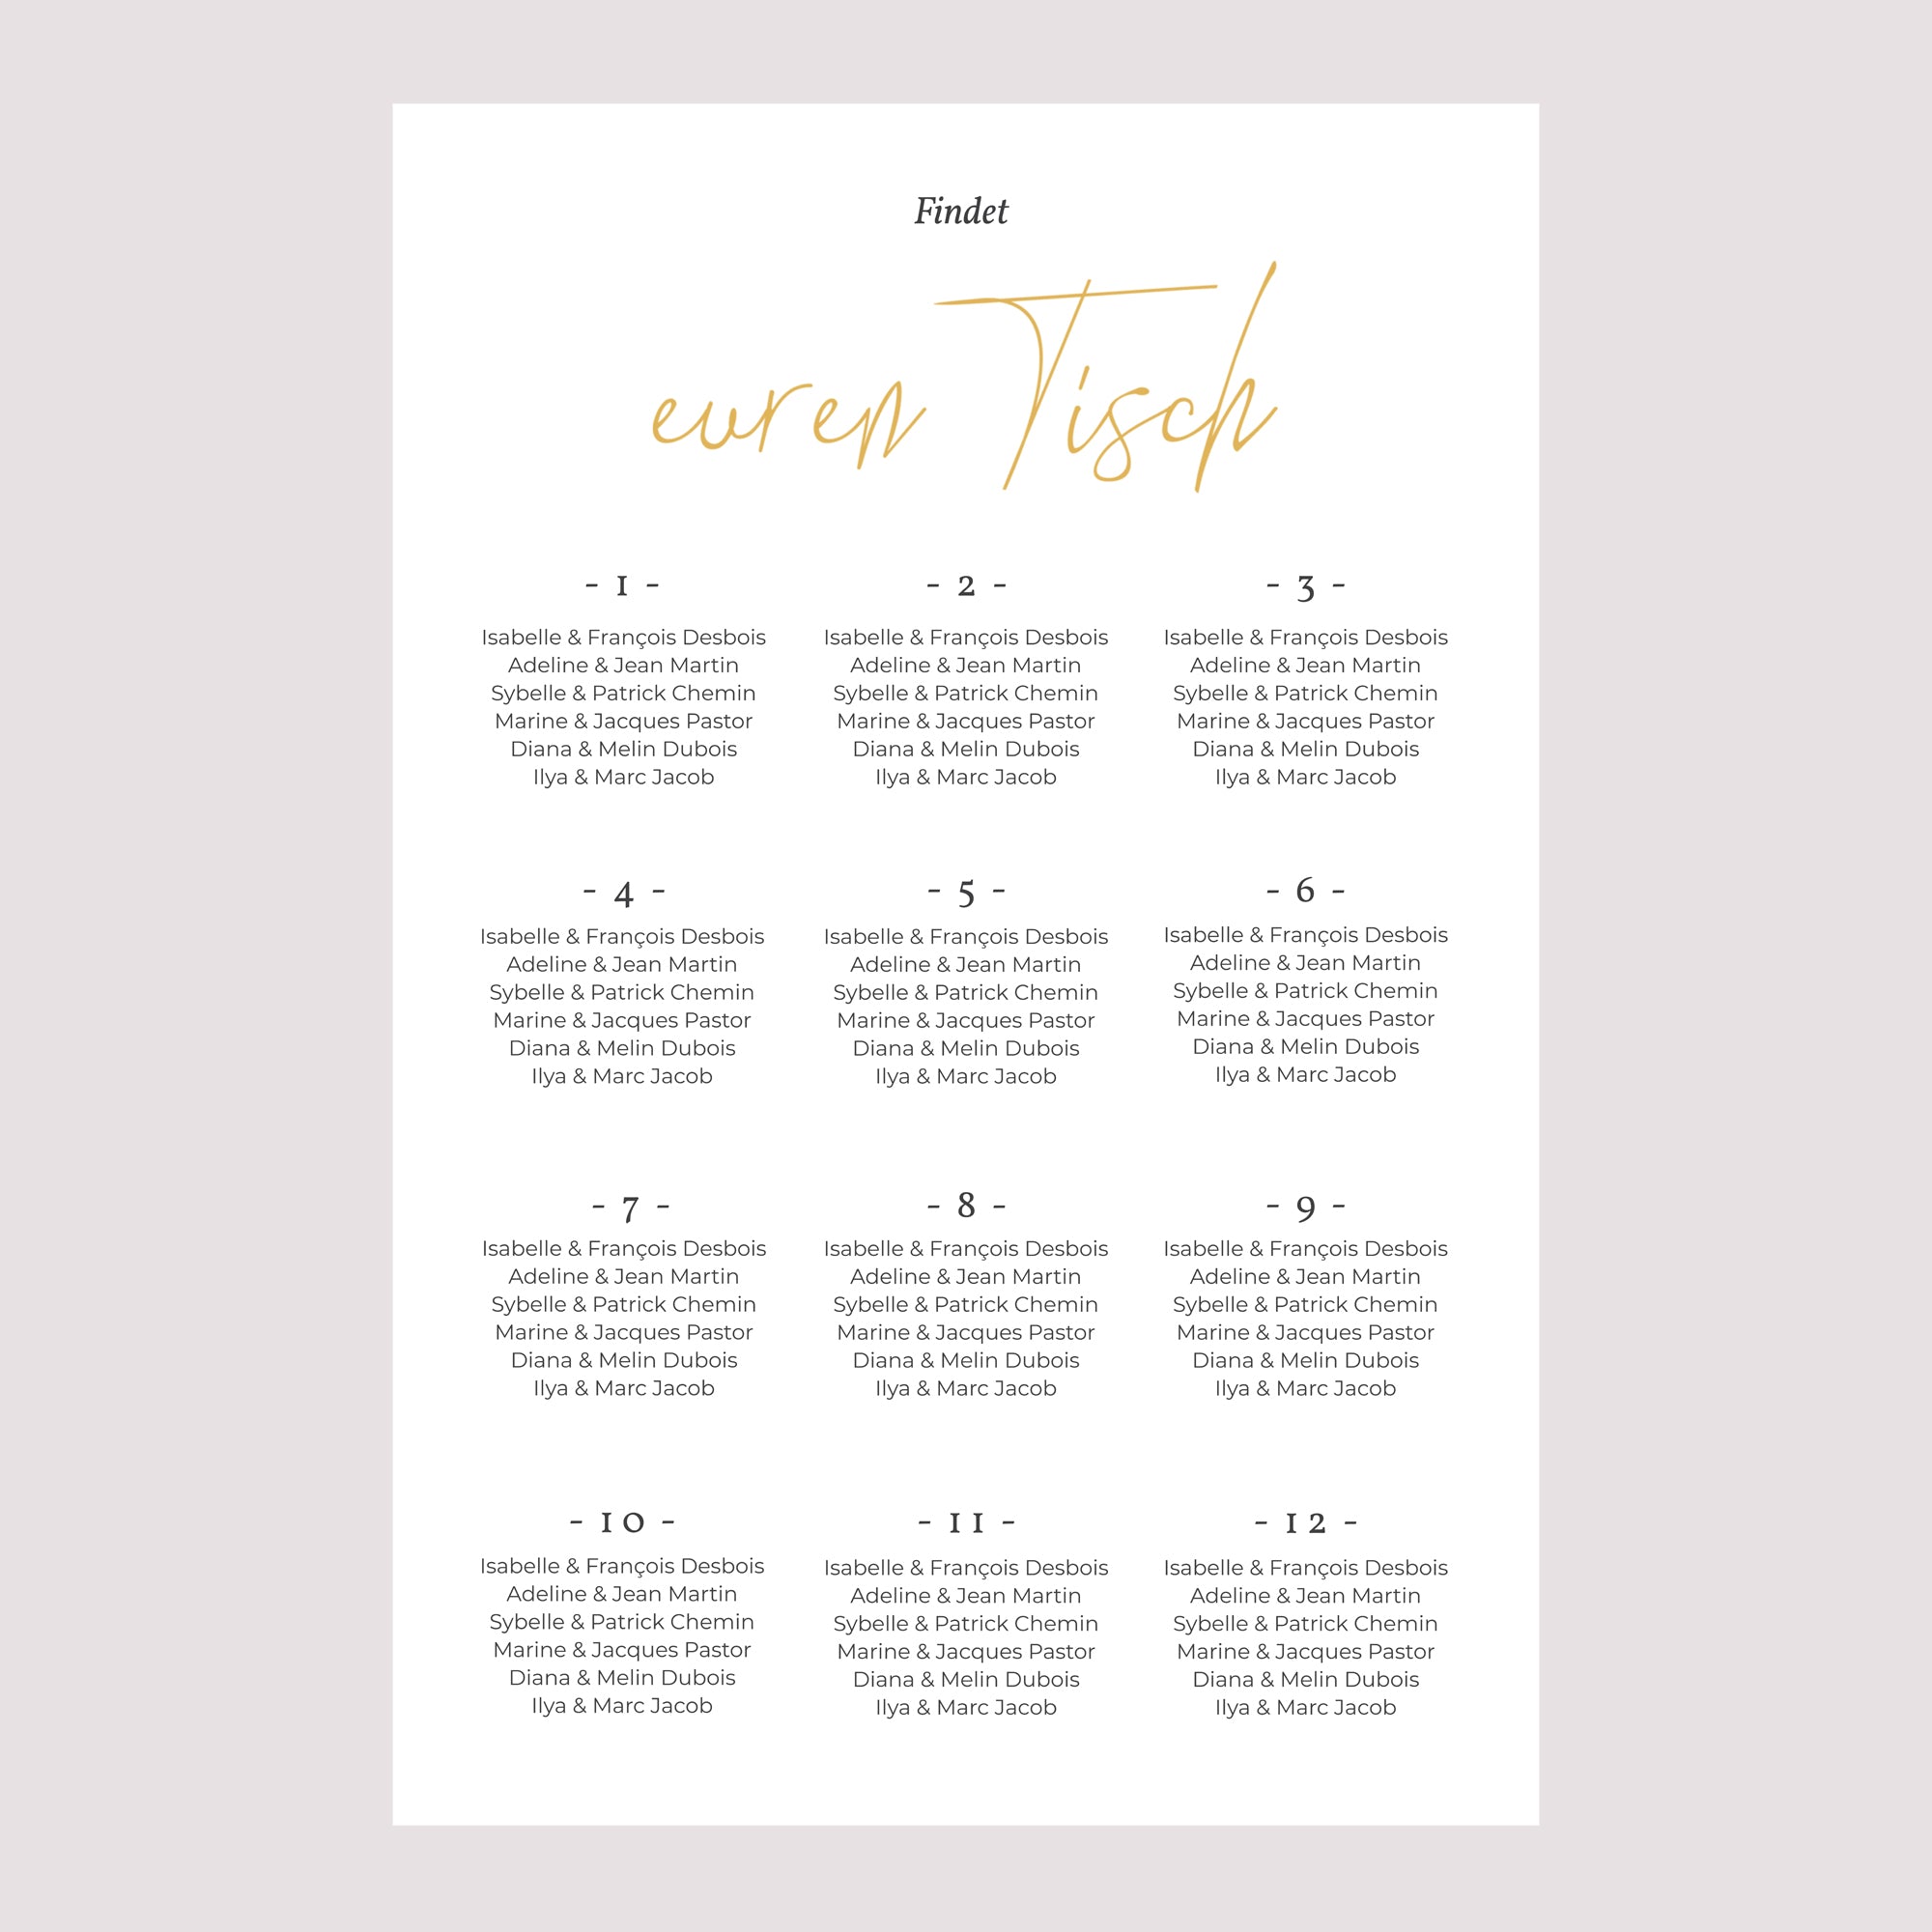 Findet
euren Tisch
- 1 -
Isabelle & François Desbois
Adeline & Jean Martin
Sybelle & Patrick Chemin
Marine & Jacques Pastor
Diana & Melin Dubois
Ilya & Marc Jacob
- 2 -
Isabelle & François Desbois
Adeline & Jean Martin
Sybelle & Patrick Chemin
Marine & Jacques Pastor
Diana & Melin Dubois
Ilya & Marc Jacob
- 3 -
Isabelle & François Desbois
Adeline & Jean Martin
Sybelle & Patrick Chemin
Marine & Jacques Pastor
Diana & Melin Dubois
Ilya & Marc Jacob
- 4 -
Isabelle & François Desbois
Adeline & Jean Martin
Sybelle & Patrick Chemin
Marine & Jacques Pastor
Diana & Melin Dubois
Ilya & Marc Jacob
- 5 -
Isabelle & François Desbois
Adeline & Jean Martin
Sybelle & Patrick Chemin
Marine & Jacques Pastor
Diana & Melin Dubois
Ilya & Marc Jacob
- 6 -
Isabelle & François Desbois
Adeline & Jean Martin
Sybelle & Patrick Chemin
Marine & Jacques Pastor
Diana & Melin Dubois
Ilya & Marc Jacob
- 7 -
Isabelle & François Desbois
Adeline & Jean Martin
Sybelle & Patrick Chemin
Marine & Jacques Pastor
Diana & Melin Dubois
Ilya & Marc Jacob
- 8 -
Isabelle & François Desbois
Adeline & Jean Martin
Sybelle & Patrick Chemin
Marine & Jacques Pastor
Diana & Melin Dubois
Ilya & Marc Jacob
- 9 -
Isabelle & François Desbois
Adeline & Jean Martin
Sybelle & Patrick Chemin
Marine & Jacques Pastor
Diana & Melin Dubois
Ilya & Marc Jacob
- 10 -
Isabelle & François Desbois
Adeline & Jean Martin
Sybelle & Patrick Chemin
Marine & Jacques Pastor
Diana & Melin Dubois
Ilya & Marc Jacob
- 11 -
Isabelle & François Desbois
Adeline & Jean Martin
Sybelle & Patrick Chemin
Marine & Jacques Pastor
Diana & Melin Dubois
Ilya & Marc Jacob
- 12 -
Isabelle & François Desbois
Adeline & Jean Martin
Sybelle & Patrick Chemin
Marine & Jacques Pastor
Diana & Melin Dubois
Ilya & Marc Jacob